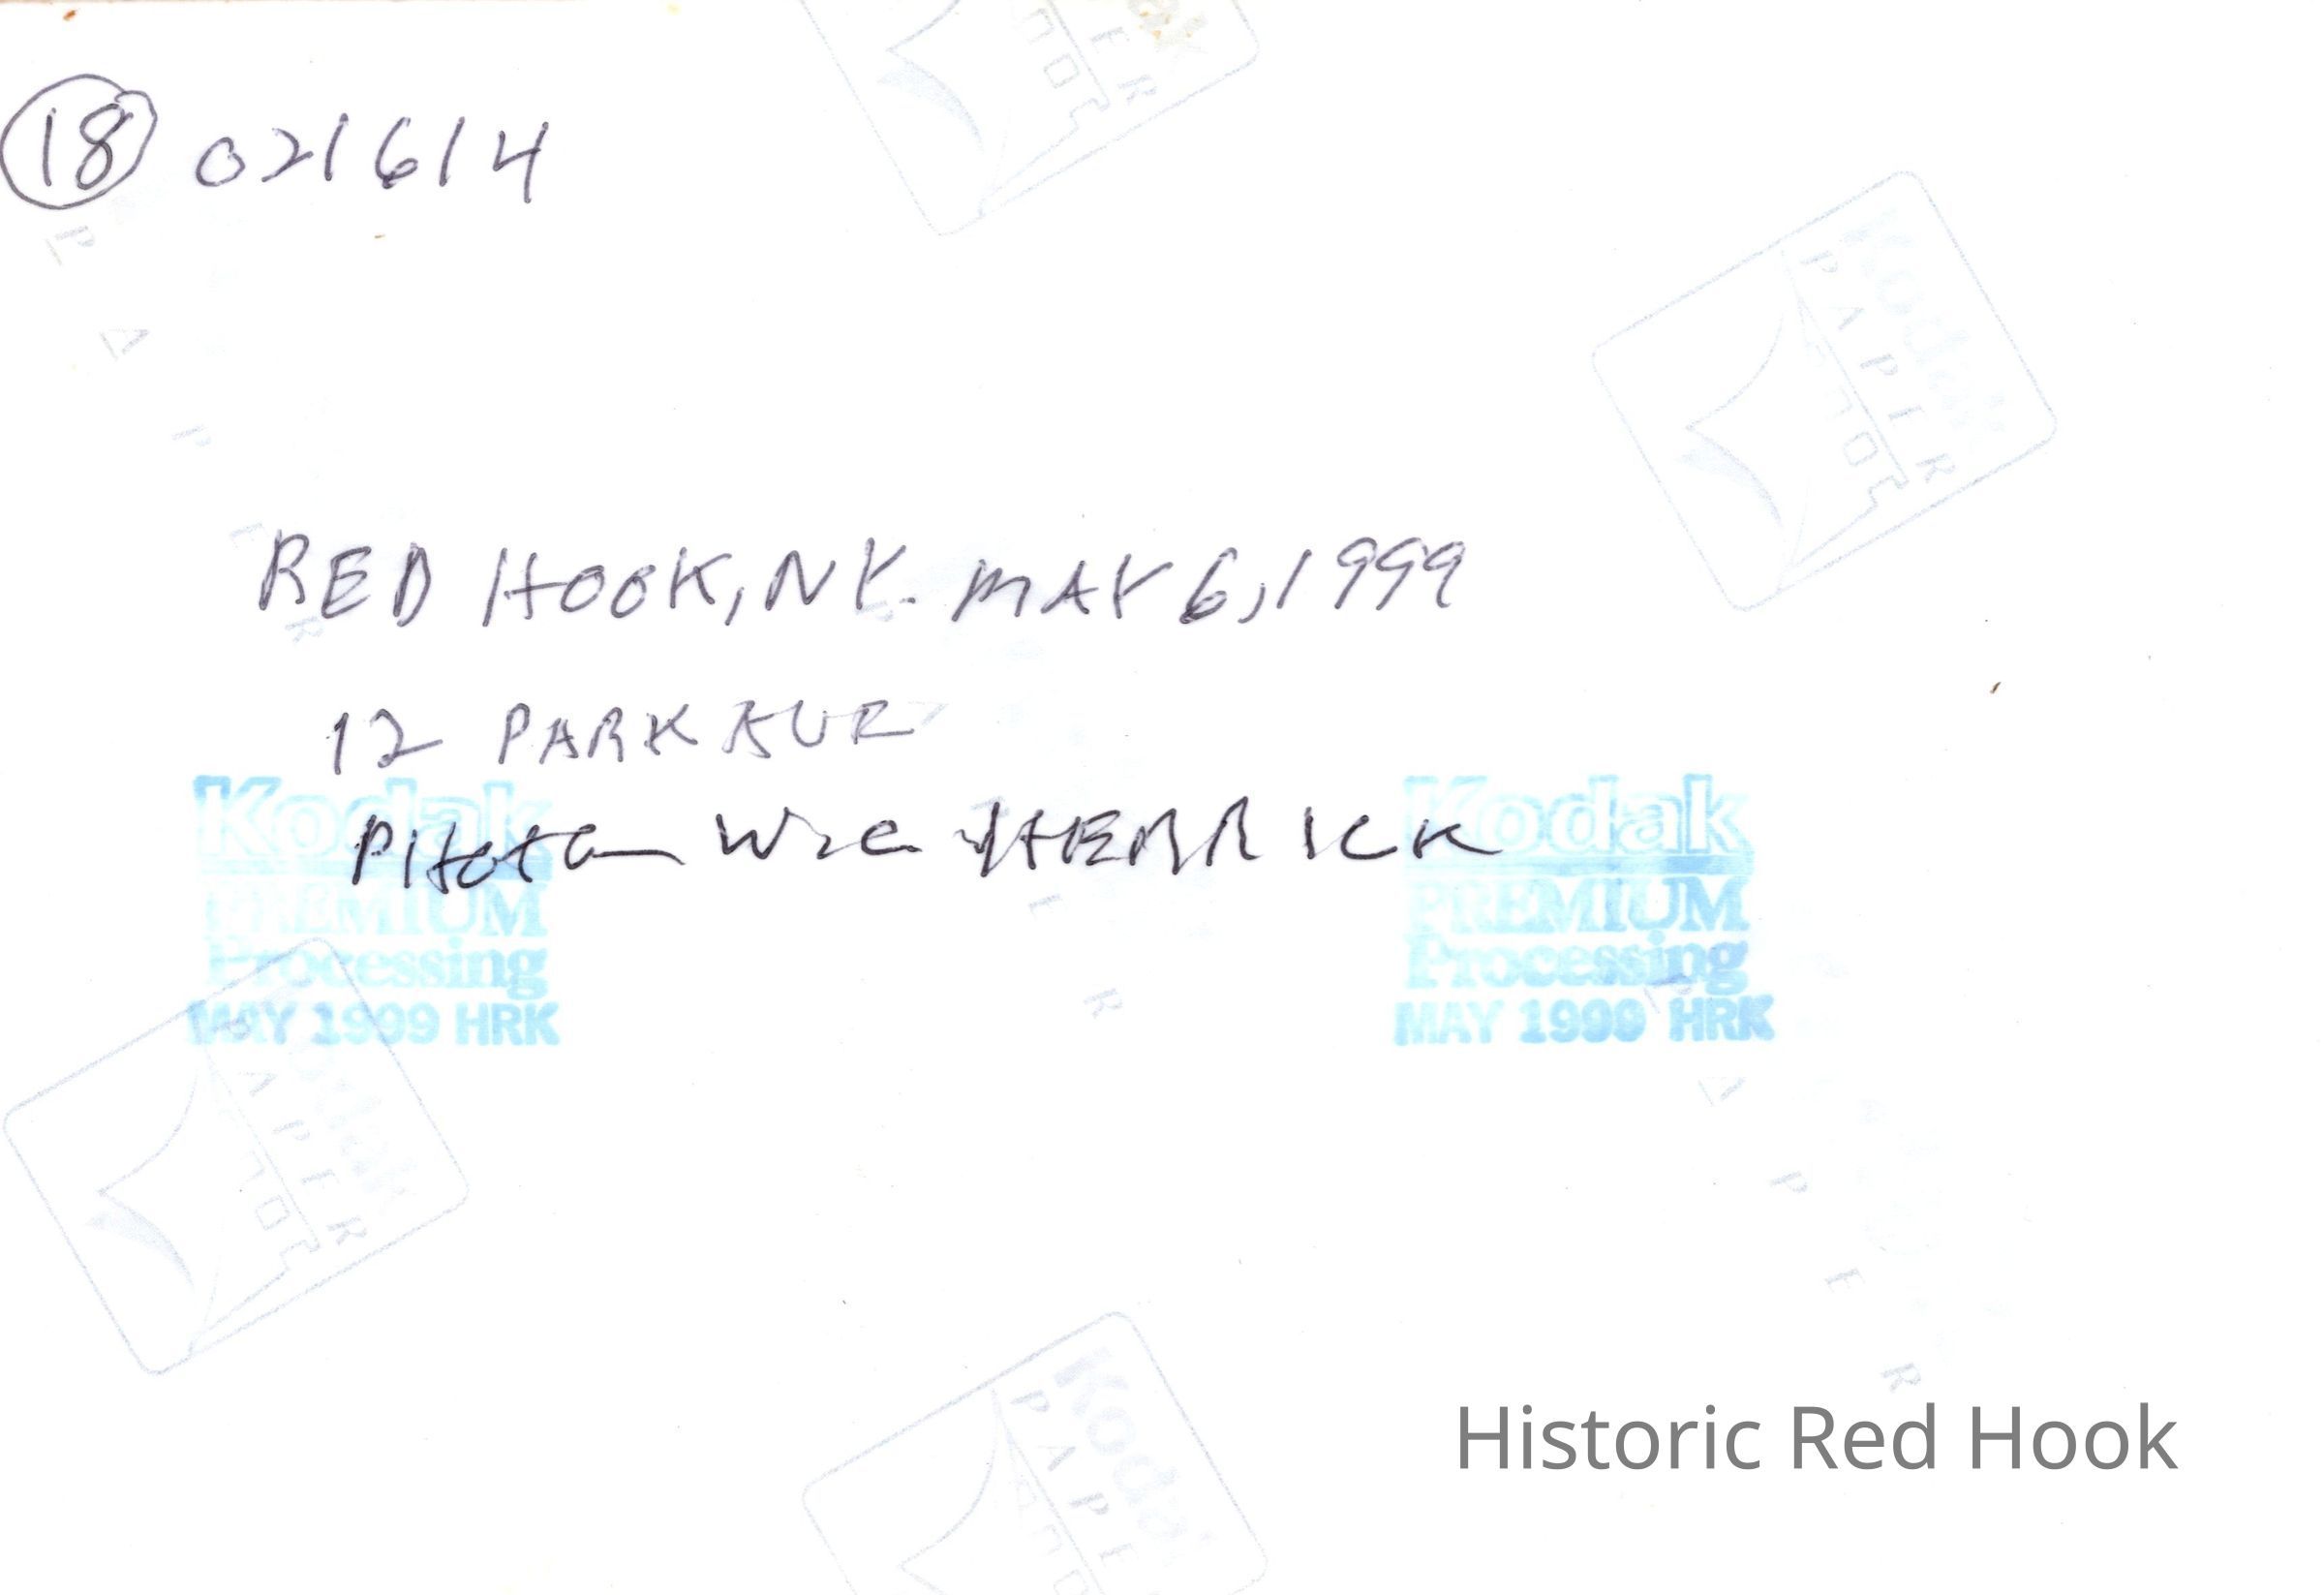 18 021614
RED HOOK, NY. MAY 6, 1999
12 PARK AVE
PHOTO W HERRICK
Kodak
PREMIUM
Processing
MAY 1999 HRK
Kodak
PREMIUM
Processing
MAY 1999 HRK
Kodak
PAPER
Historic Red Hook